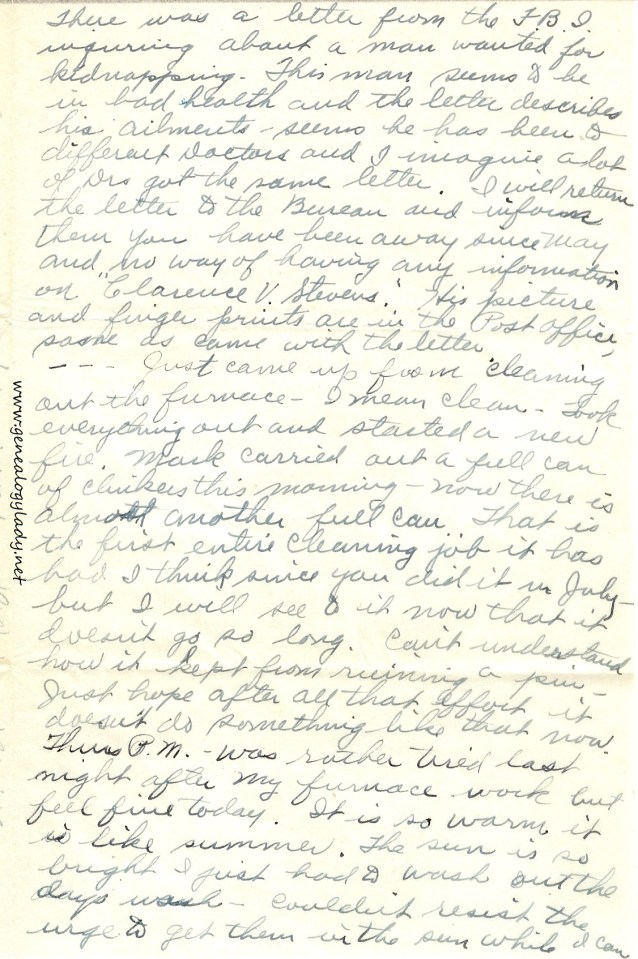 There was a letter from the F B I
inquiring about a man wanted for
kidnapping. This man seems to be
in bad health and the letter describes
his ailments - seems he has been to
different Doctors and I imagine a lot
of Drs got the same letter. I will return
the letter to the Bureau and inform
them you have been away since May
and no way of having any information
on "Clarence V. Stevens." His picture
and finger prints are in the Post office,
same as came with the letter
- - - Just came up from cleaning
out the furnace - I mean clean - Took
everything out and started a new
fire. Mark carried out a full can
of clinkers this morning - now there is
almost another full can. That is
the first entire cleaning job it has
had I think since you did it in July -
but I will see to it now that it
doesn't go so long. Can't understand
how it kept from ruining a pin -
Just hope after all that effort it
doesn't do something like that now.
Thurs P.M. - was rather tired last
night after my furnace work but
feel fine today. It is so warm it
is like summer. The sun is so
bright I just had to wash out the
days wash - couldn't resist the
urge to get them in the sun while I can
www.genealogylady.net